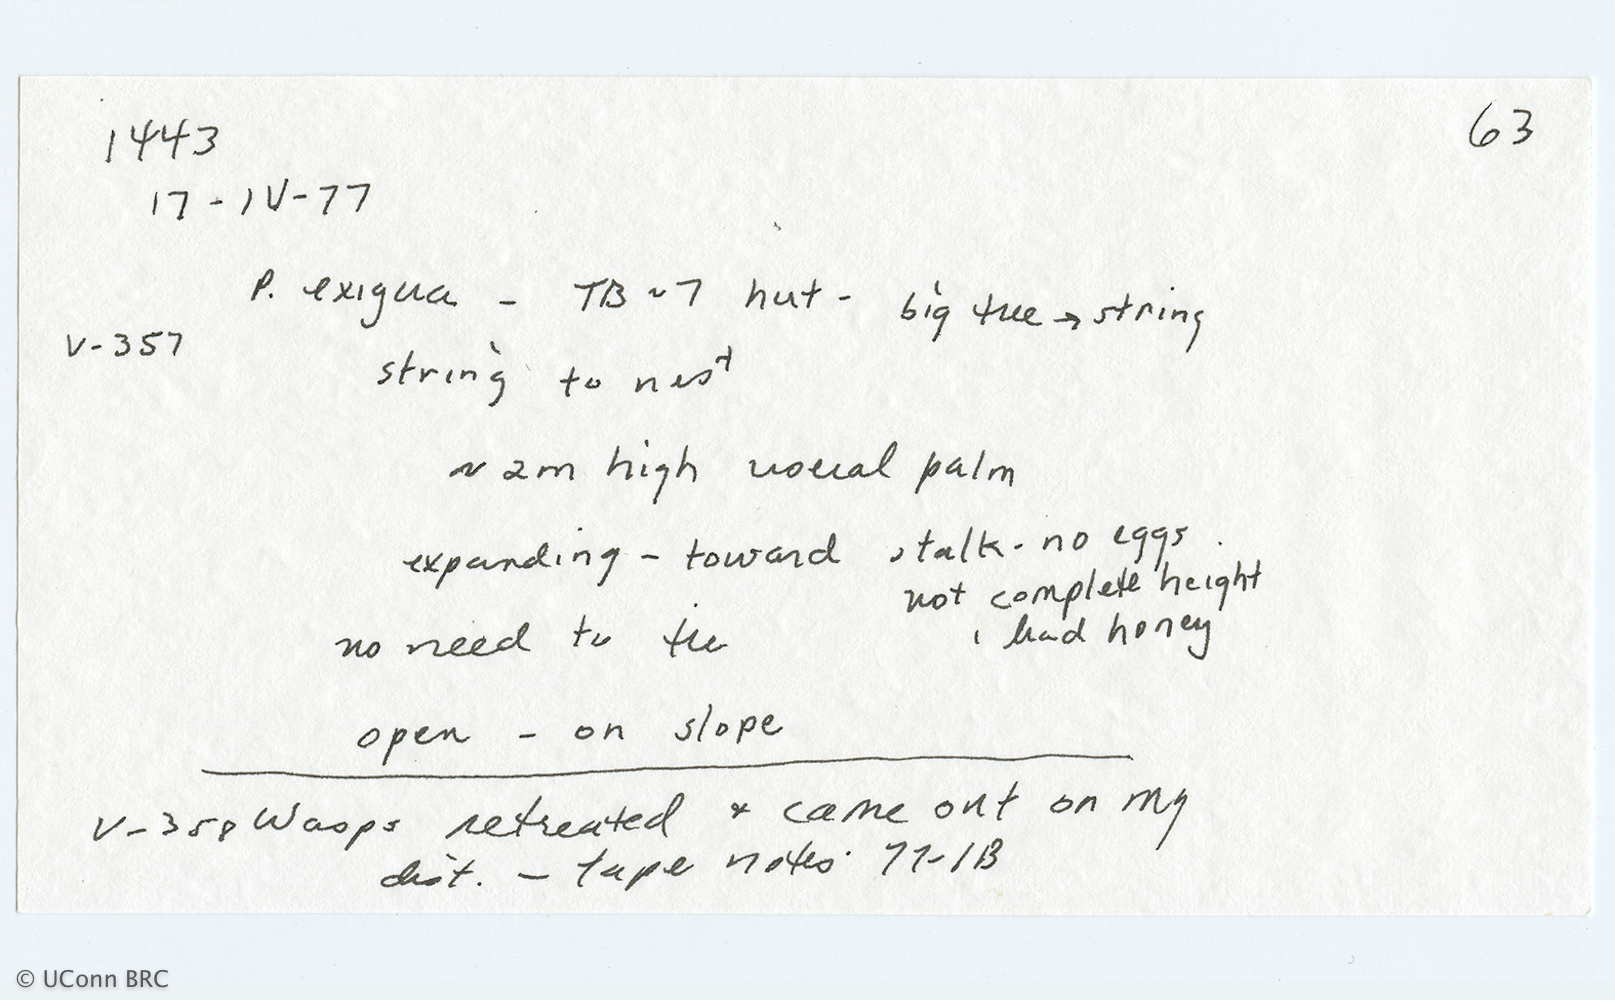 1443
63
17-IV-77
P. exigua - TB~7 hut - big tree → string
V-357
string to nest
~2m high usual palm
expanding - toward stalk - no eggs.
not complete height
had honey
no need to
open - on slope
V-358 Wasps retreated & came out on my
dist. - tape notes 77-1B
© UConn BRC